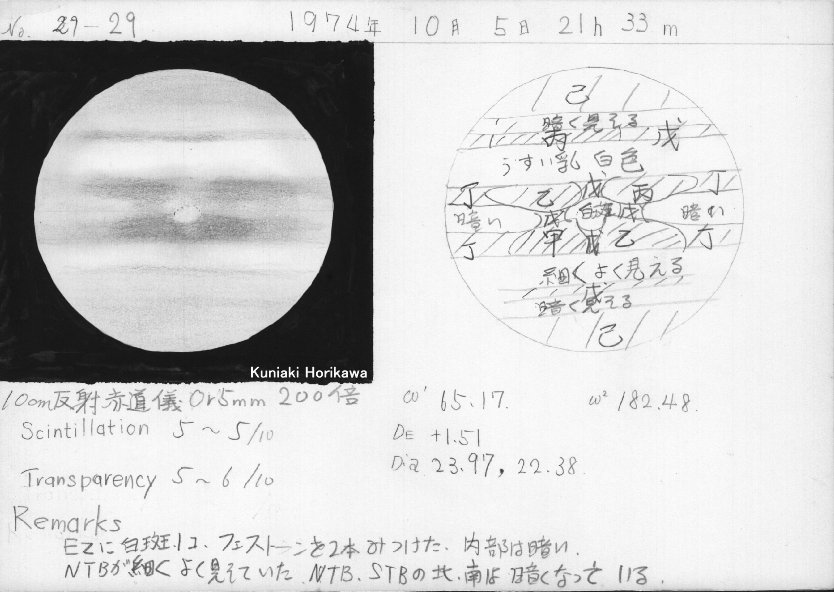 No. 29-29 1974年 10月 5日 21h 33m
己
暗く見える
丙 戊
うすい乳白色
丁 乙 戊 丙 丁
暗い 戊 白斑 戊 暗い
丁 甲 戊 乙 丁
細くよく見える
戊
暗く見える
己
Kuniaki Horikawa
10cm反射赤道儀 Or5mm 200倍
ω¹ 65.17. ω² 182.48.
Scintillation 5~5/10
DE +1.51
Dia 23.97, 22.38.
Transparency 5~6/10
Remarks
EZに白斑1コ、フェストーンを2本みつけた。内部は暗い.
NTBが細くよく見えていた. NTB. STBの北.南は暗くなっている.